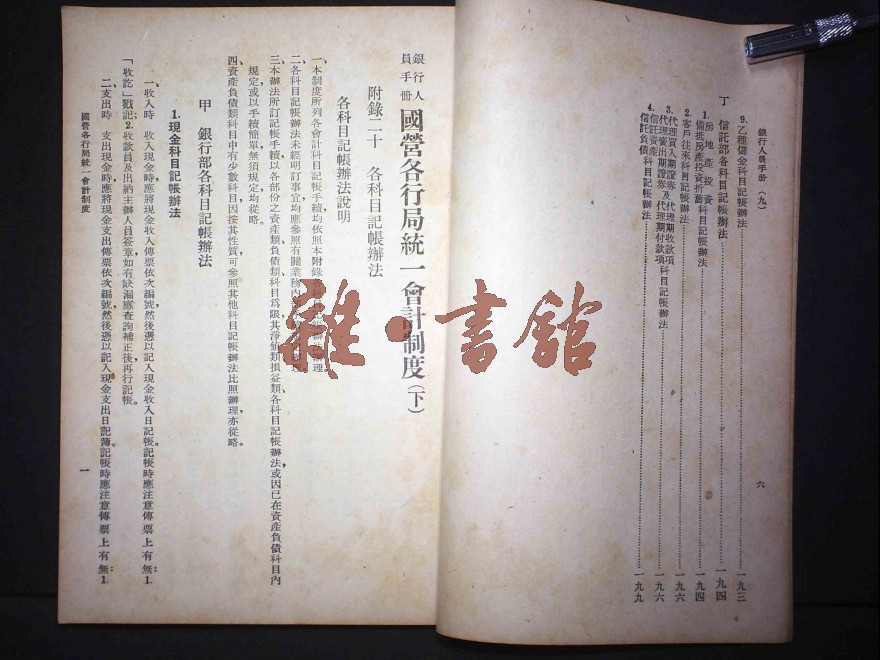 銀行人員手冊（九）
9.乙種儲金科目記帳辦法……一九三
丁　信託部各科目記帳辦法……一九四
1.房地產投資科目記帳辦法……一九四
備抵房產投資折舊
2.客戶往來科目記帳辦法……一九六
3.代理買入期證券及代理期收款項
代理賣出期證券　代理期付款項科目記帳辦法……一九六
4.信託資產
信託負債科目記帳辦法……一九九
六
銀行人員手冊
國營各行局統一會計制度（下）
附錄二十　各科目記帳辦法
各科目記帳辦法說明
一、本制度所列各會計科目記帳手續均依照本附錄
二、各科目記帳辦法未經明訂事宜均應參照有關業務內
三、本辦法所訂記帳手續以各部份之資產類負債類科目爲限其淨值類損益類各科目記帳辦法或因已在資產負債科目內
規定或以手續簡單無須規定均從略。
四、資產負債類科目中有少數科目因按其性質可參照其他科目記帳辦法比照辦理亦從略。
甲　銀行部各科目記帳辦法
1.現金科目記帳辦法
一、收入時　收入現金時應將現金收入傳票依次編號然後憑以記入現金收入日記帳記帳時應注意傳票上有無：1.
「收訖」戳記；2.收款員及出納主辦人員簽章如有缺漏應查詢補正後再行記帳。
二、支出時　支出現金時應將現金支出傳票依次編號然後憑以記入現金支出日記簿記帳時應注意傳票上有無：1.
國營各行局統一會計制度
一
雜・書館